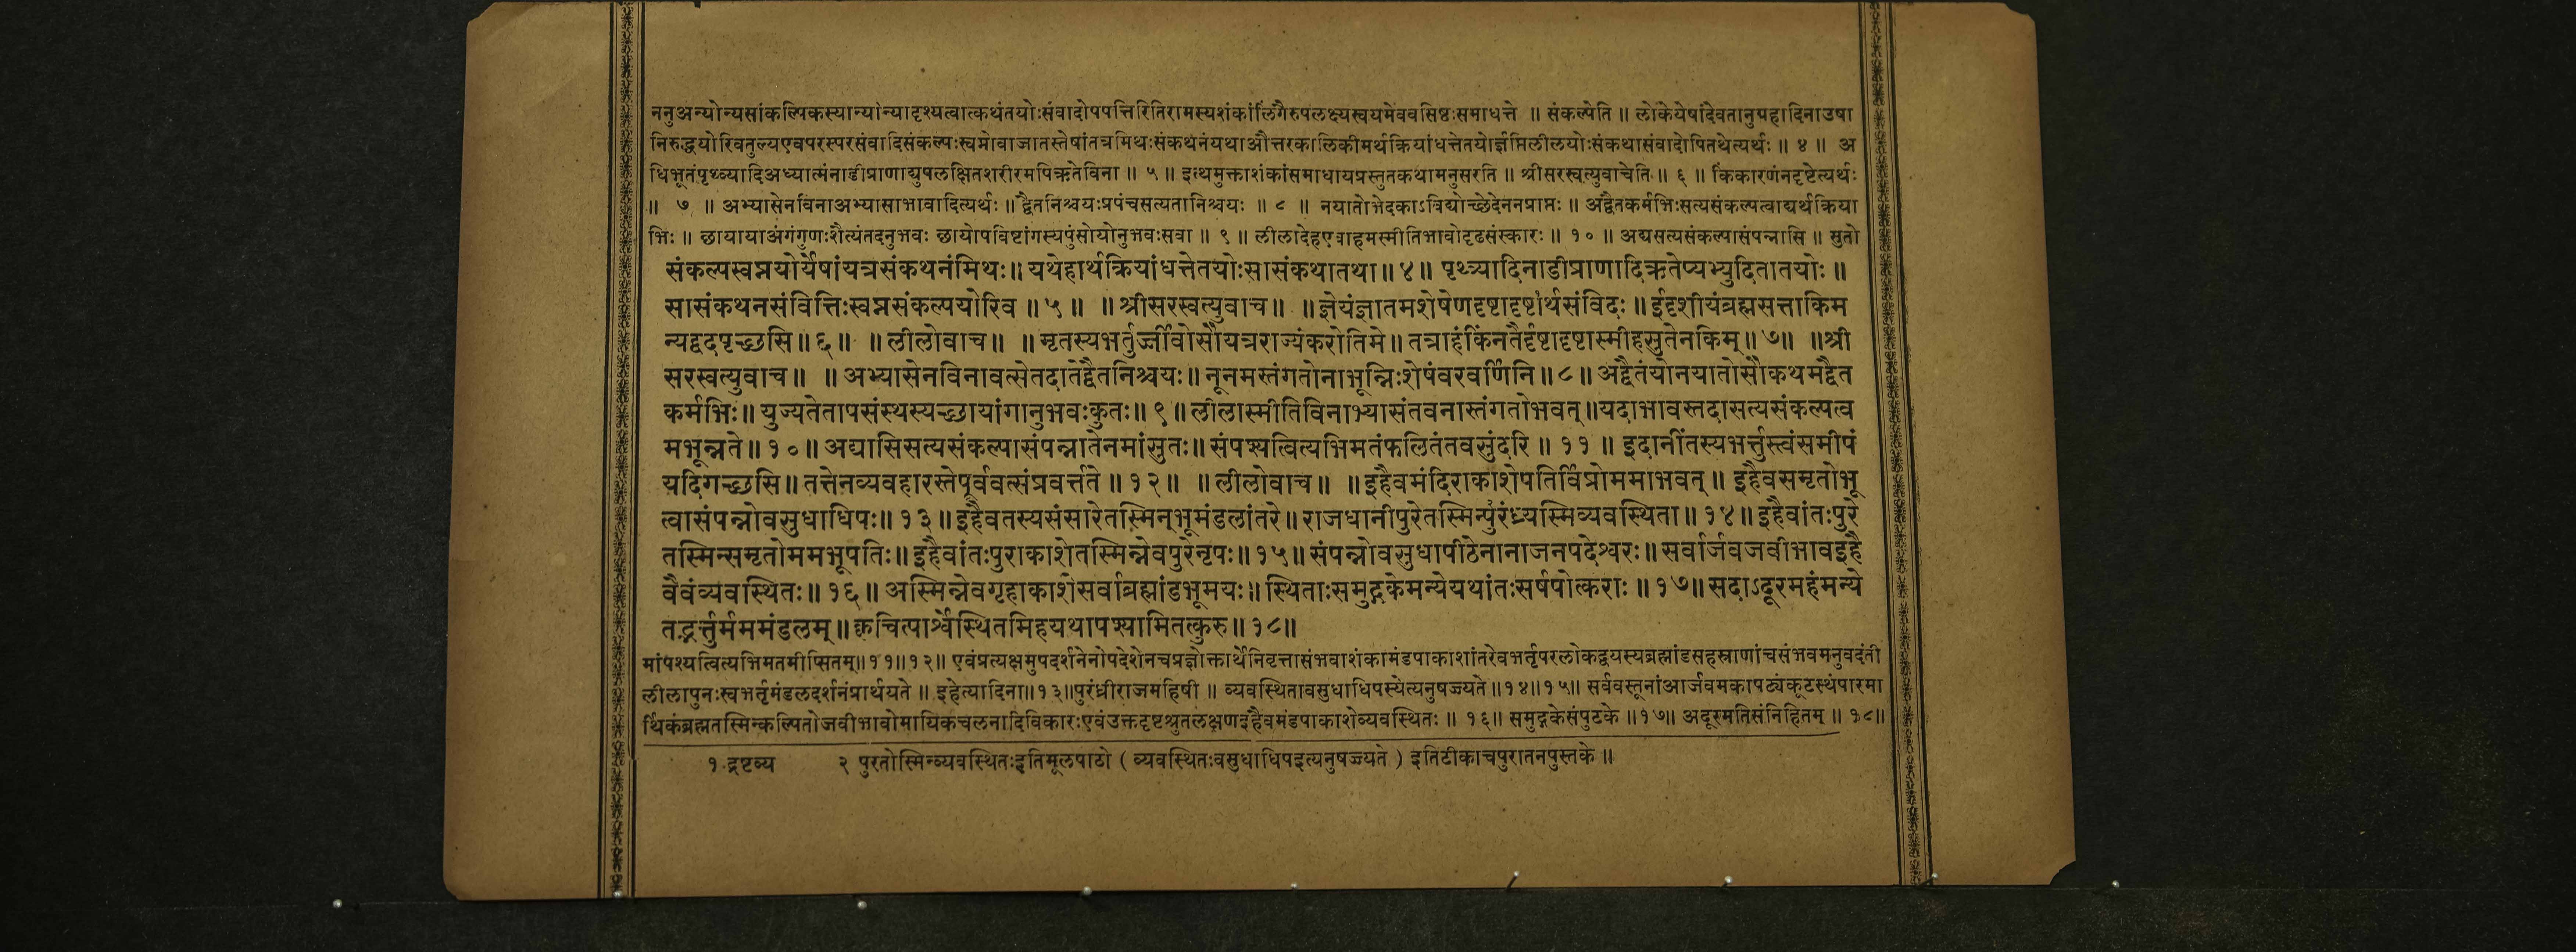 ननुअन्योन्यसांकल्पिकस्यान्योन्यादृश्यत्वात्कथंतयोःसंवादोपपत्तिरितिरामस्यशंकांलिंगैरुपलक्ष्यस्वयमेववसिष्ठःसमाधत्ते ॥ संकल्पेति ॥ लोकेयेषांदेवतानुग्रहादिनाउषा
निरुद्धयोरिवतुल्यएवपरस्परसंवादिसंकल्पःस्वप्नोवाजातस्तेषांतत्रमिथःसंकथनंयथाऔत्तरकालिकीमर्थक्रियांधत्तेतयोर्ज्ञप्तिलीलयोःसंकथासंवादोपितथेत्यर्थः ॥ ४ ॥ अ
धिभूतंपृथ्व्यादिअध्यात्मंनाडीप्राणाद्युपलक्षितशरीरमपिऋतेविना ॥ ५ ॥ इत्थमुक्ताशंकांसमाधायप्रस्तुतकथामनुसरति ॥ श्रीसरस्वत्युवाचेति ॥ ६ ॥ किंकारणंनदृष्टेत्यर्थः
॥ ७ ॥ अभ्यासेनविनाअभ्यासाभावादित्यर्थः ॥ द्वैतनिश्चयःप्रपंचसत्यतानिश्चयः ॥ ८ ॥ नयातोभेदकाऽविद्योच्छेदेननप्राप्तः ॥ अद्वैतकर्मभिःसत्यसंकल्पत्वाद्यर्थक्रिया
भिः ॥ छायायाअंगंगुणःशैत्यंतदनुभवः छायोपविष्टांगस्यपुंसोयोनुभवःसवा ॥ ९ ॥ लीलादेहएवाहमस्मीतिभावोदृढसंस्कारः ॥ १० ॥ अद्यसत्यसंकल्पासंपन्नासि ॥ सुतो
संकल्पस्वप्नयोर्येषांयत्रसंकथनंमिथः॥ यथेहार्थक्रियांधत्तेतयोःसासंकथातथा॥ ४॥ पृथ्व्यादिनाडीप्राणादिऋतेप्यभ्युदितातयोः॥
सासंकथनसंवित्तिःस्वप्नसंकल्पयोरिव ॥ ५ ॥ ॥ श्रीसरस्वत्युवाच॥ ॥ ज्ञेयंज्ञातमशेषेणदृष्टादृष्टार्थसंविदः॥ ईदृशीयंब्रह्मसत्ताकिम
न्यद्वदपृच्छसि॥ ६॥ ॥ लीलोवाच॥ ॥ मृतस्यभर्तुर्ज्जीवोसौयत्रराज्यंकरोतिमे॥ तत्राहंकिंनतैर्दृष्टादृष्टास्मीहसुतेनकिम्॥ ७॥ ॥श्री
सरस्वत्युवाच॥ ॥ अभ्यासेनविनावत्सेतदातेद्वैतनिश्चयः॥ नूनमस्तंगतोनाभून्निःशेषंवरवर्णिनि॥ ८॥ अद्वैतंयोनयातोसौकथमद्वैत
कर्मभिः॥ युज्यतेतापसंस्थस्यच्छायांगानुभवःकुतः॥ ९॥ लीलास्मीतिविनाभ्यासंतवनास्तंगतोभवत्॥यदाभावस्तदासत्यसंकल्पत्व
मभून्नते॥ १०॥ अद्यासिसत्यसंकल्पासंपन्नातेनमांसुतः॥ संपश्यत्वित्यभिमतंफलितंतवसुंदरि ॥ ११ ॥ इदानींतस्यभर्त्तुस्त्वंसमीपं
यदिगच्छसि॥ तत्तेनव्यवहारस्तेपूर्ववत्संप्रवर्त्तते ॥ १२॥ ॥ लीलोवाच॥ ॥ इहैवमंदिराकाशेपतिर्विप्रोममाभवत्॥ इहैवसमृतोभू
त्वासंपन्नोवसुधाधिपः॥ १३॥ इहैवतस्यसंसारेतस्मिन्भूमंडलांतरे॥ राजधानीपुरेतस्मिन्पुरंध्र्यस्मिव्यवस्थिता॥ १४॥ इहैवांतःपुरे
तस्मिन्समृतोममभूपतिः॥ इहैवांतःपुराकाशेतस्मिन्नेवपुरेनृपः॥ १५॥ संपन्नोवसुधापीठेनानाजनपदेश्वरः॥ सर्वार्जवजवीभावइहै
वैवंव्यवस्थितः॥ १६॥ अस्मिन्नेवगृहाकाशेसर्वाब्रह्मांडभूमयः॥ स्थिताःसमुद्गकेमन्येयथांतःसर्षपोत्कराः ॥ १७॥ सदाऽदूरमहंमन्ये
तद्भर्त्तुर्मममंडलम्॥ क्वचित्पार्श्वेस्थितमिहयथापश्यामितत्कुरु॥ १८॥
मांपश्यत्वित्यभिमतमीप्सितम्॥११॥१२॥ एवंप्रत्यक्षमुपदर्शनेनोपदेशेनचप्रज्ञोक्तार्थेनिवृत्तासंभवाशंकामंडपाकाशांतरेवभर्तृपरलोकद्वयस्यब्रह्मांडसहस्राणांचसंभवमनुवदंती
लीलापुनःस्वभर्तृमंडलदर्शनंप्रार्थयते ॥ इहेत्यादिना॥१३॥पुरंध्रीराजमहिषी ॥ व्यवस्थितावसुधाधिपस्येत्यनुषज्यते॥१४॥१५॥ सर्ववस्तूनांआर्जवमकापट्यंकूटस्थंपारमा
र्थिकंब्रह्मतस्मिन्कल्पितोजवीभावोमायिकचलनादिविकारःएवंउक्तदृष्टश्रुतलक्षणइहैवमंडपाकाशेव्यवस्थितः ॥ १६॥ समुद्गकेसंपुटके ॥१७॥ अदूरमतिसंनिहितम् ॥ १८॥
१ द्रष्टव्य २ पुरतोस्मिन्व्यवस्थितःइतिमूलपाठो ( व्यवस्थितःवसुधाधिपइत्यनुषज्ज्यते ) इतिटीकाचपुरातनपुस्तके ॥